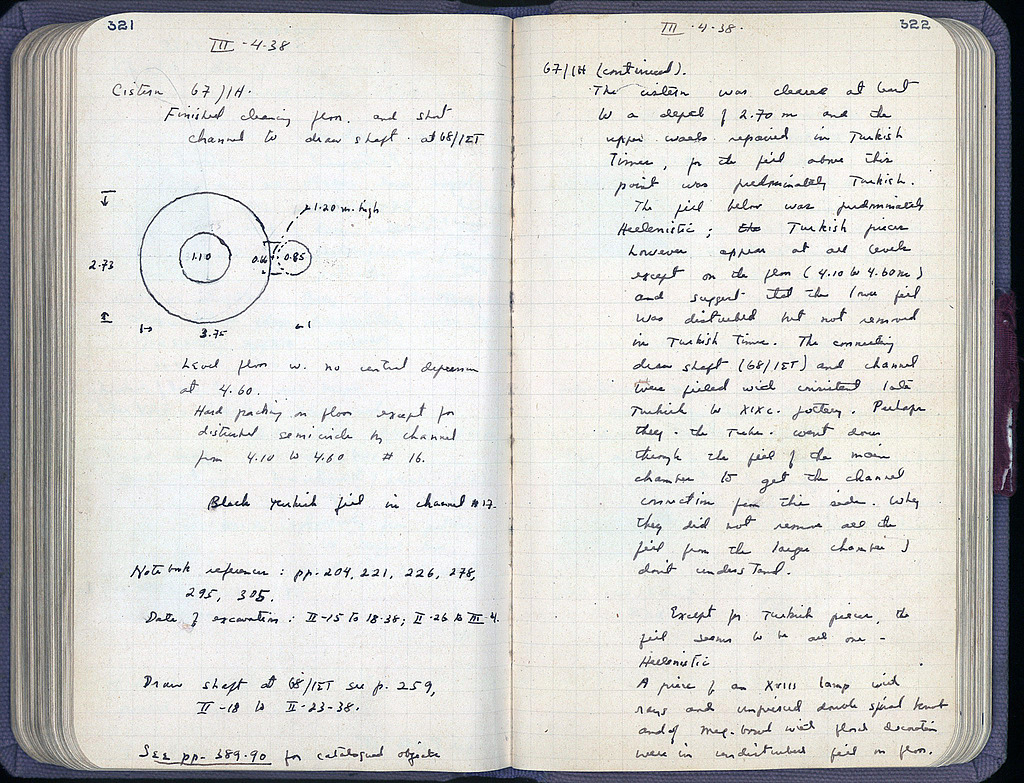 321
III - 4 - 38
Cistern 67/1H.
Finished cleaning floor. and short
channel to draw shaft. at 68/IET
1.20 m. high
2.73
1.10
0.85
3.75
Level floor w. no central depression
at 4.60.
Hard packing on floor except for
disturbed semicircle by channel
from 4.10 to 4.60 # 16.
Black Turkish fill in channel # 17.
Notebook references: pp. 204, 221, 226, 278,
295, 305.
Date of excavation: II-15 to 18.38; II-26 to III-4.
Draw shaft at 68/IET see p. 259,
II-18 to II-23-38.
SEE pp. 389-90 for catalogued objects
322
III - 4 - 38.
67/1H (continued).
The cistern was cleared at
to a depth of 2.70 m and the
upper walls repaired in Turkish
Times, for the fill above this
point was predominately Turkish.
The fill below was predominately
Hellenistic; the Turkish pieces
however appear at all levels
except on the floor (4.10 to 4.60 m)
and suggest that the lower fill
was disturbed but not removed
in Turkish Times. The connecting
draw shaft (68/IET) and channel
were filled with consistent late
Turkish to XIX c. pottery. Perhaps
they - the Turks - went down
through the fill of the main
chamber to get the channel
connection from this side. Why
they did not remove all the
fill from the larger chamber I
don't understand.
Except for Turkish pieces, the
fill seems to be all one -
Hellenistic
A piece of an XVIII lamp with
rays and impressed double spiral
and of Meg. bowl with floral decoration
were in undisturbed fill on floor.